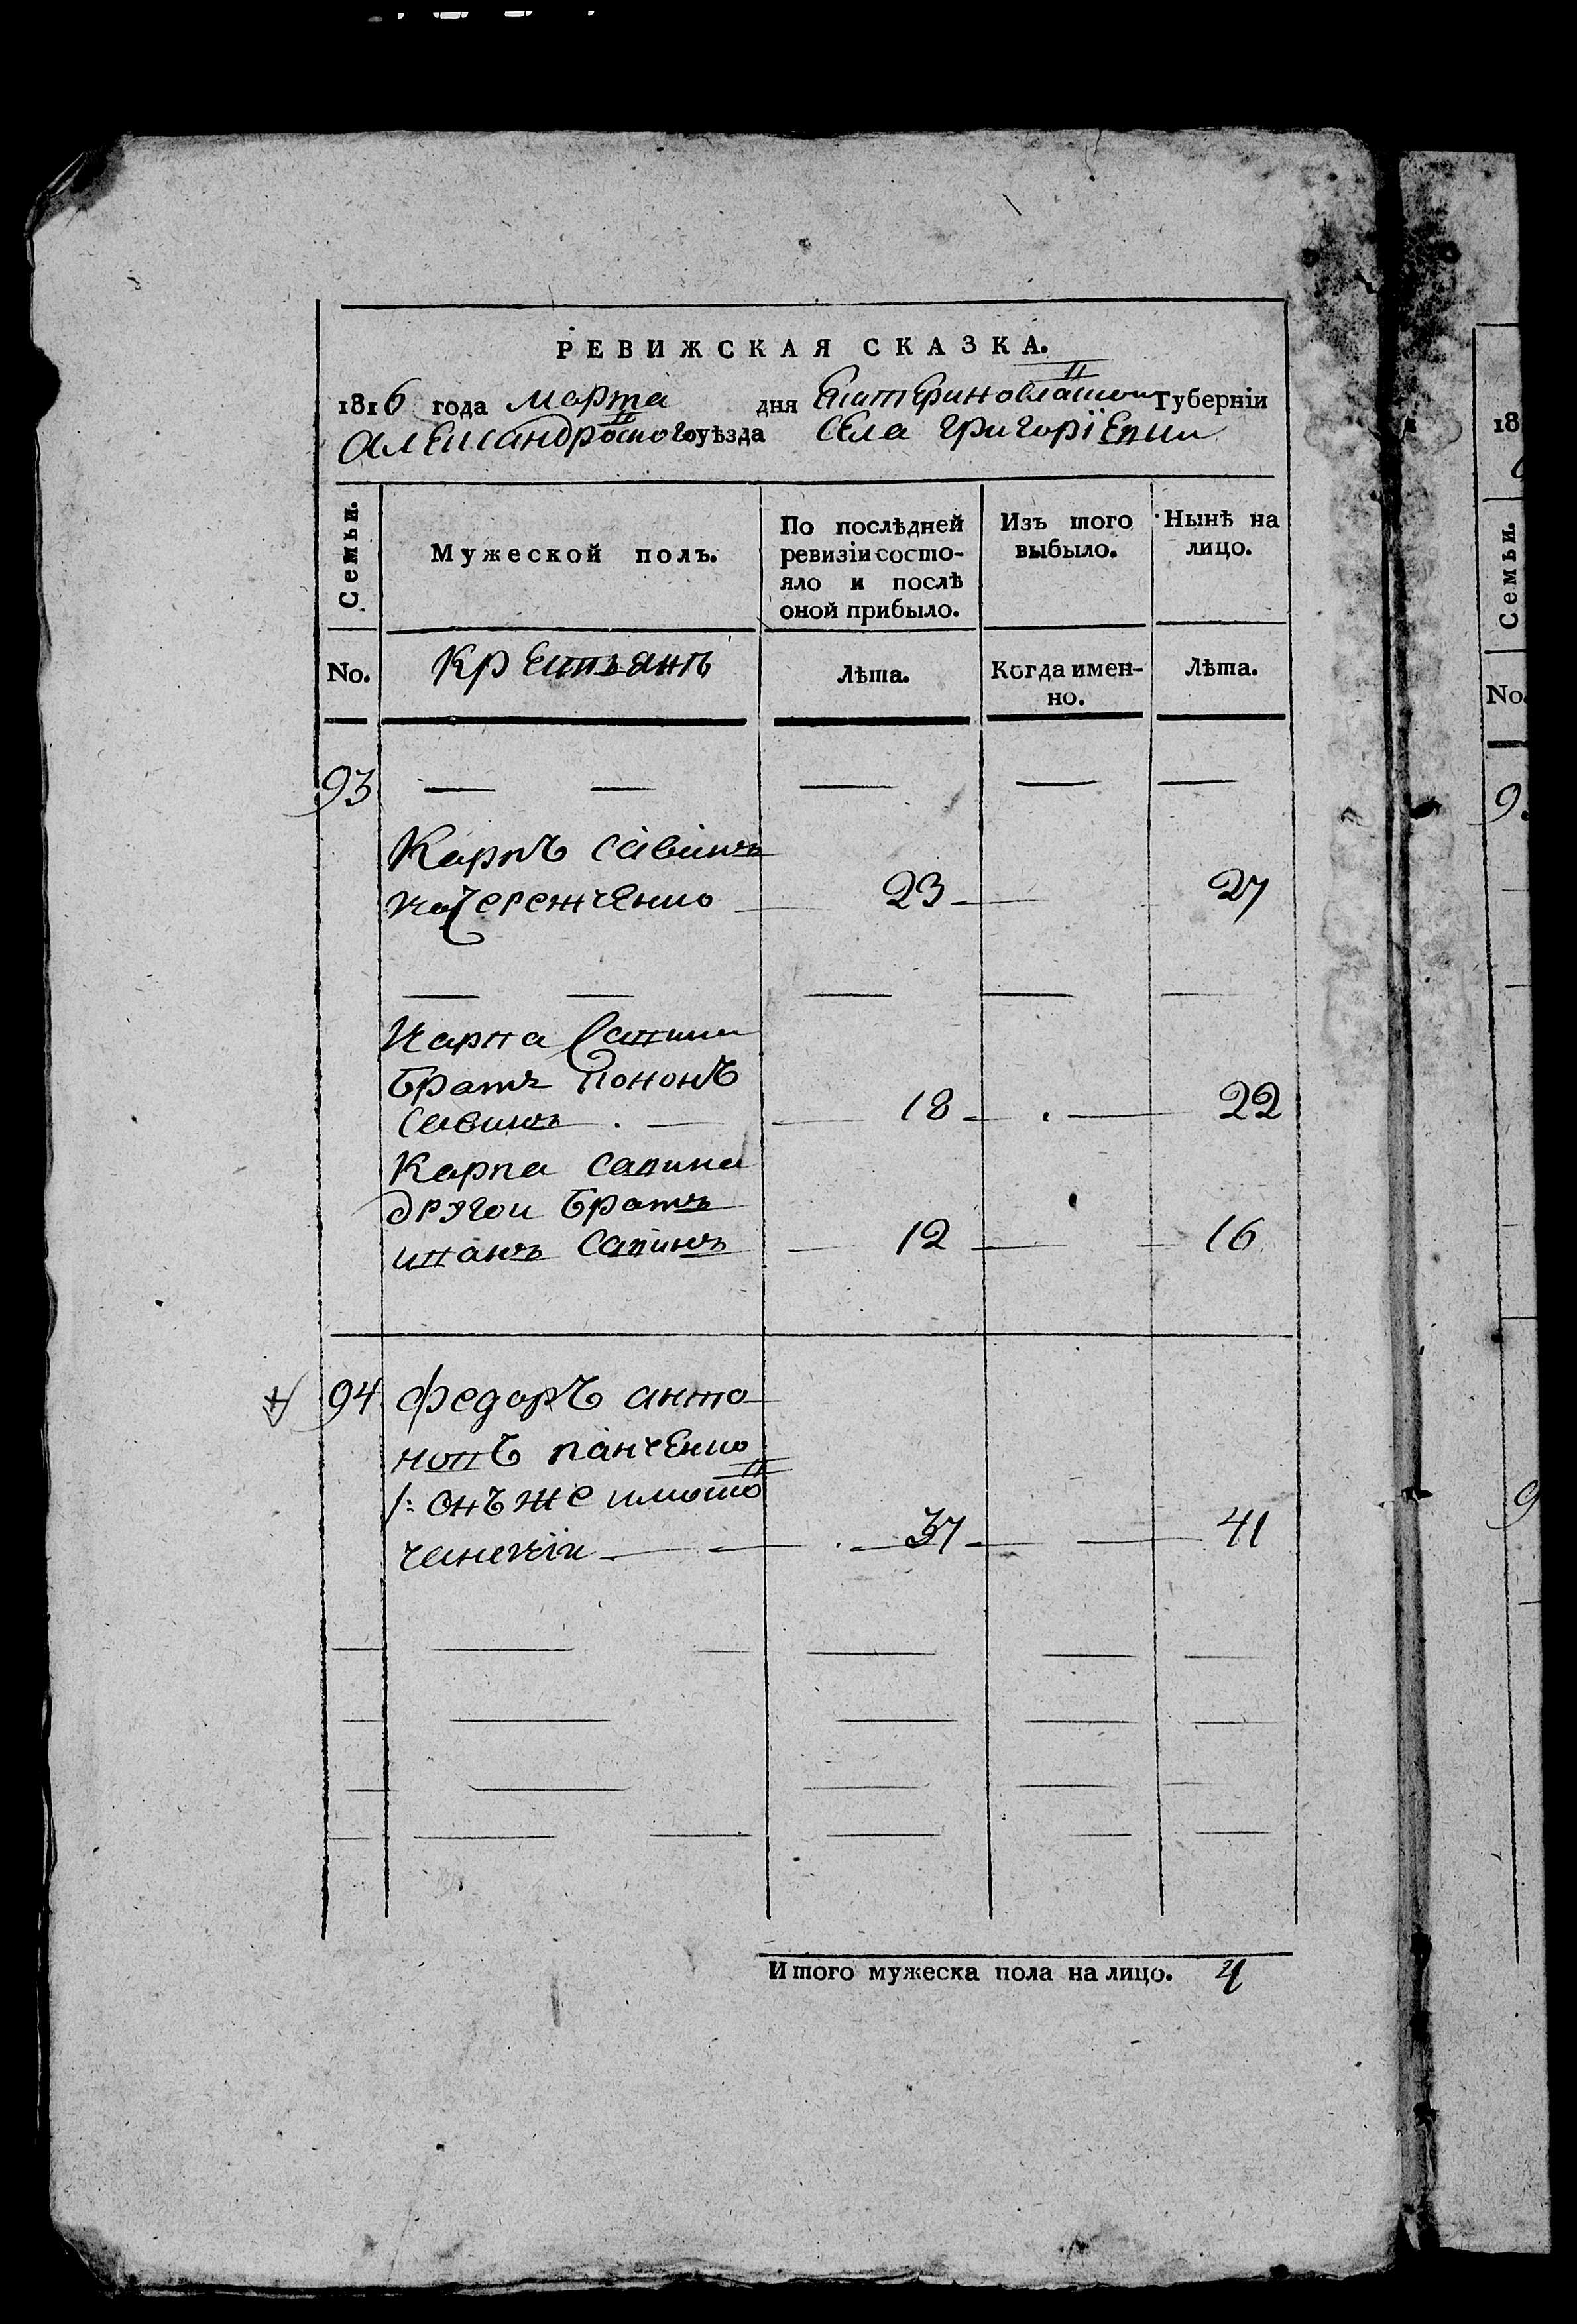 РЕВИЖСКАЯ СКАЗКА.
1816 года марта дня Екатериновласкои Губернїи
Александроского уѣзда села григорїевки
Семьи.
Мужеской полъ.
По послѣдней
ревизїи состо-
яло и послѣ
оной прибыло.
Изъ того
выбыло.
Нынѣ на
лицо.
No.
Крестьянъ
Лѣта.
Когда имен-
но.
Лѣта.
93
Карпъ савинъ
23 27
Карпа савина
братъ кононъ
савинъ 18 22
Карпа савина
другои братъ
иванъ савинъ 12 16
94 федоръ анто
новъ панченко
/: онъ же
37 41
Итого мужеска пола на лицо. 4
18
Семьи.
No.